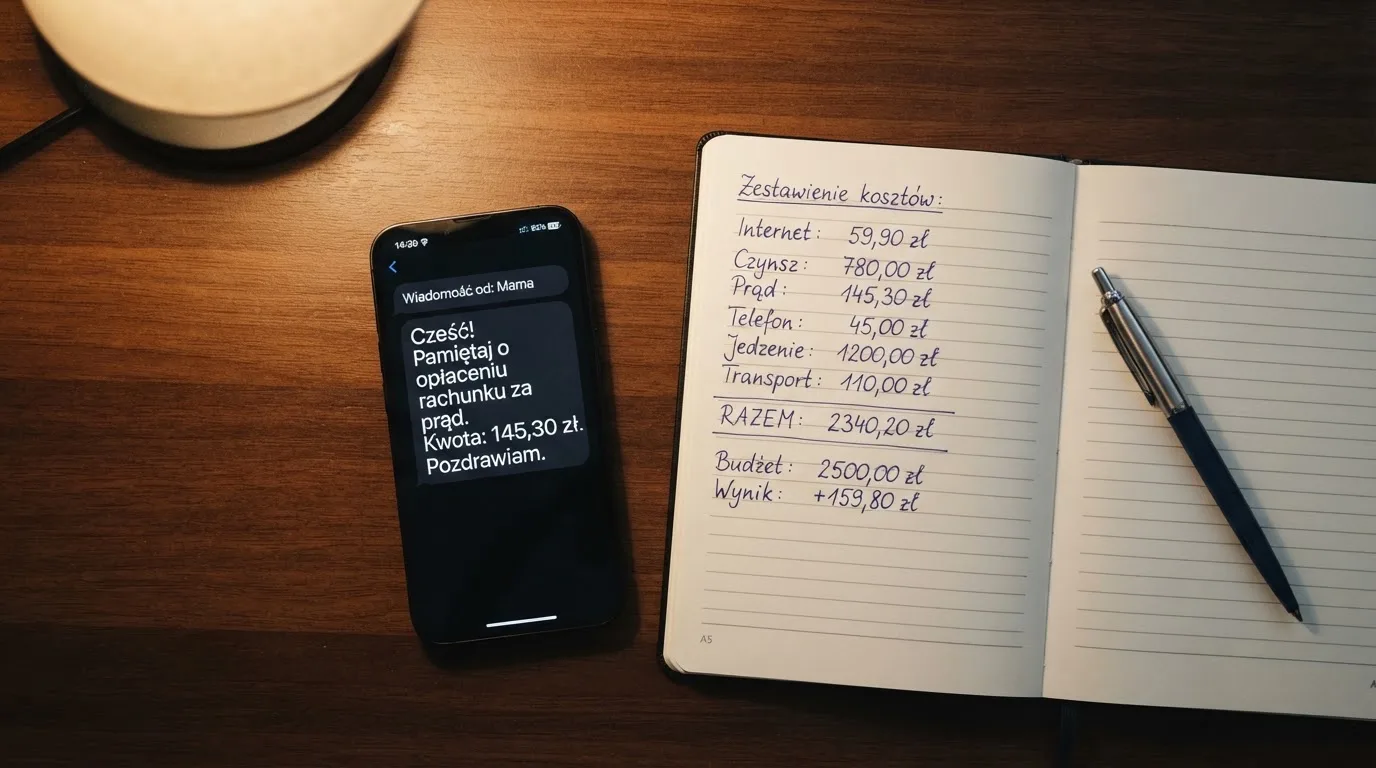 14:30
Wiadomość od: Mama
Cześć!
Pamiętaj o
opłaceniu
rachunku za
prąd.
Kwota: 145,30 zł.
Pozdrawiam.
Zestawienie kosztów:
Internet: 59,90 zł
Czynsz: 780,00 zł
Prąd: 145,30 zł
Telefon: 45,00 zł
Jedzenie: 1200,00 zł
Transport: 110,00 zł
RAZEM: 2340,20 zł
Budżet: 2500,00 zł
Wynik: +159,80 zł
A5